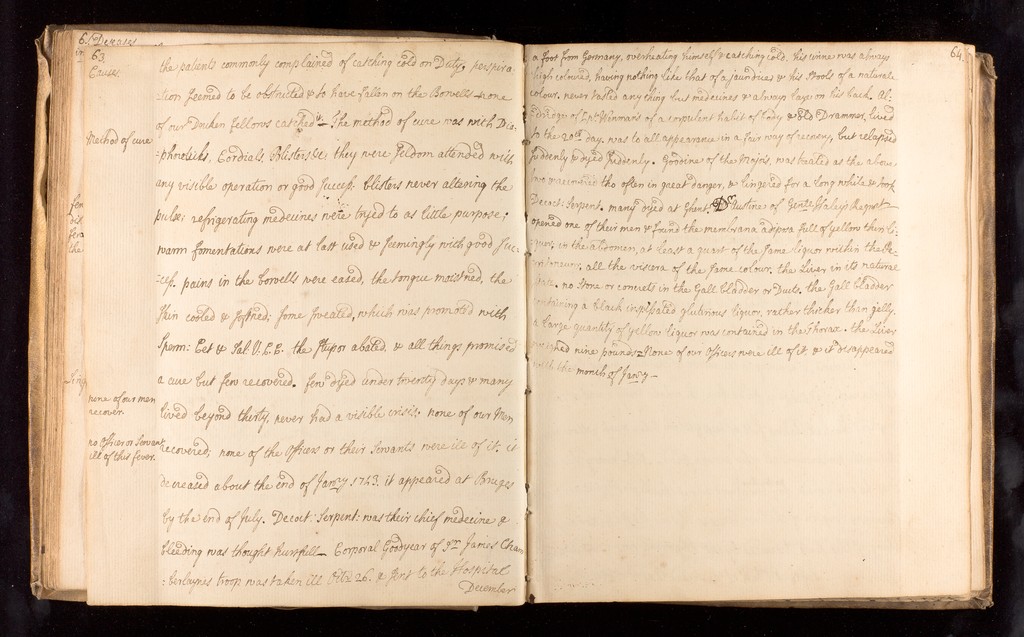 6. Diseases
63.
Causes
the patients commonly complained of catching cold on Duty, perspira
-tion seemed to be obstructed & to have fallen on the Bowells none
of our Druken fellows catched it — The method of cure was with Dia
Method of cure
-phoreticks, Cordials, Blisters &c: they were seldom attended with
any visible operation or good success. blisters never altering the
pulse: refrigerating medecines were tryed to as little purpose;
warm fomentations were at last used & seemingly with good suc
-cess. pains in the bowells were eased, the tongue moistned, the
skin cooled & softned; some sweated, which was promoted with
Sperm: Cet & Sal V.C.C. the stupor abated, & all things promised
a cure but few recovered. few dyed under twenty days & many
none of our men
recover.
lived beyond thirty, never had a visible crisis. none of our Men
no Officer or Servant
ill of this fever.
recovered; none of the Officers or their Servants were ill of it. it
decreased about the end of Janry. 1743. it appeared at Bruges
by the end of July. Decoct: Serpent: was their chief medecine &
bleeding was thought hurtfull — Corporal Goodyear of Sr. James Cham
-berlaynes troop was taken ill 26. & sent to the Hospital
December
64.
a foot from Germany, overheating himself & catching cold, his urine was always
high coloured, having nothing like that of a jaundice & his stools of a natural
colour. never tasted any thing but medecines & always lays on his back. Al-
of Cpt. Winman's of a corpulent habit of body & old Drammer, lived
to the 20th day. was to all appearance in a fair way of recovery, but relapsed
suddenly & dyed suddenly. of the Majors, was treated as the above
two tho often in great danger, & lingered for a long while & took
Decoct: Serpent. many dyed at Ghent. Dr. Austine of Genll. Haley's Regmt.
opened one of their men & found the membrana adiposa full of yellow thin li-
-quor, in the abdomen, at least a quart of the same liquor within the Pe-
-ritoneum, all the viscera of the same colour, the Liver in its natural
state. no stone or concrets in the Gall bladder or Ducts. the Gall bladder
containing a black inspissated glutinous liquor, rather thicker than jelly.
a large quantity of yellow liquor was contained in the Thorax. the Liver
weighed nine pounds — None of our Officers were ill of it & it disappeared
with the month of Janry —